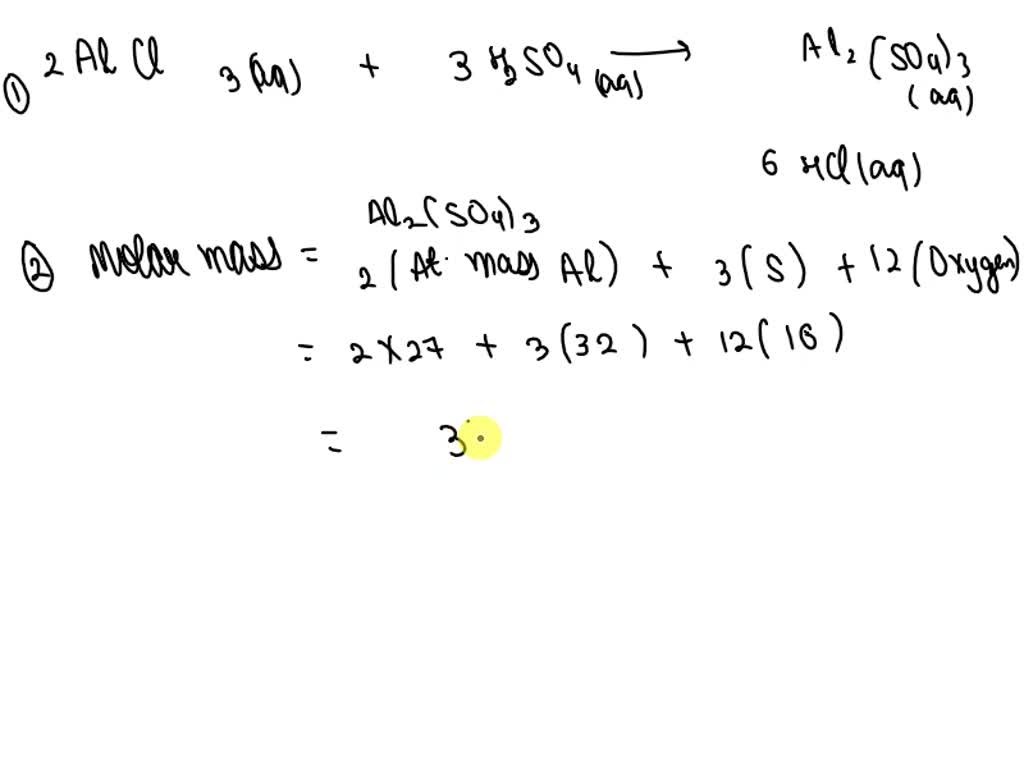 ① 2 AlCl 3 (aq) + 3 H2SO4 (aq) ⟶ Al2(SO4)3 (aq)
6 HCl (aq)
Al2(SO4)3
② Molar mass = 2 (At. mass Al) + 3 (S) + 12 (Oxygen)
= 2 × 27 + 3 (32) + 12 (16)
= 3